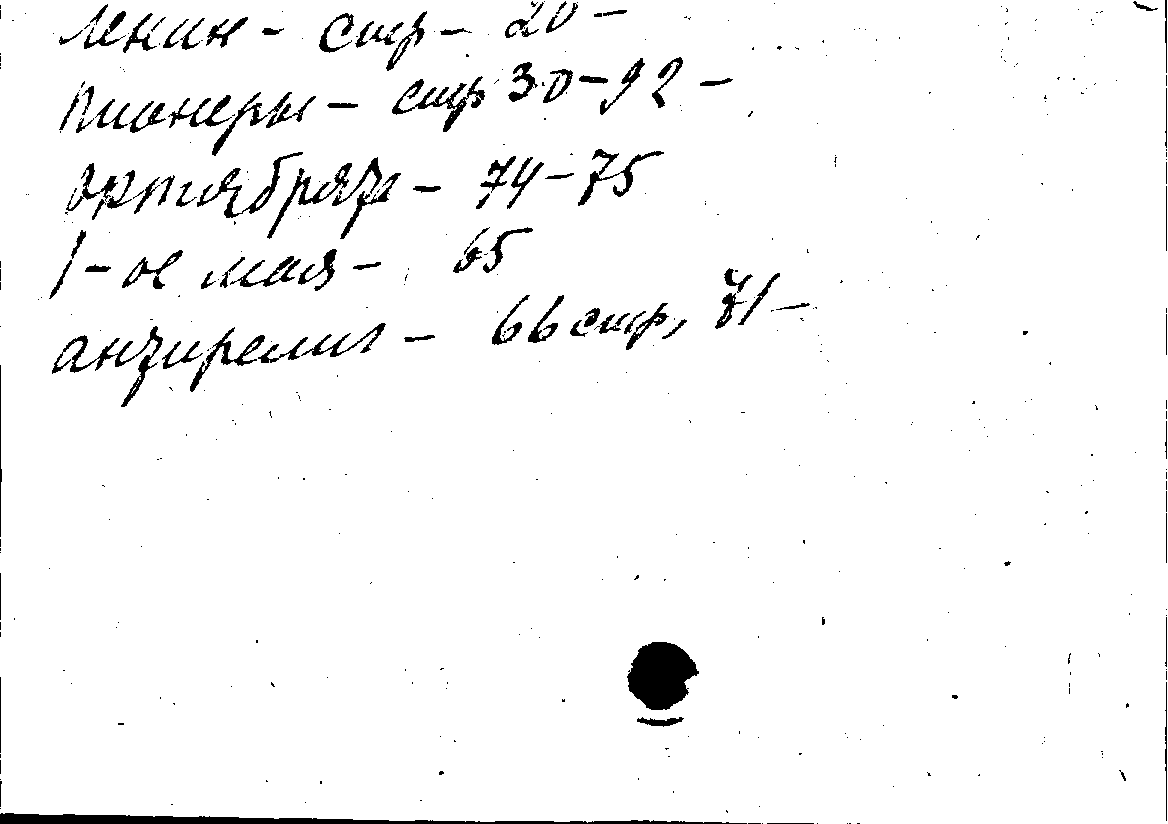 Ленин - стр - 20 -
Пионеры - стр 30-92 -
Октябрята - 74-75
1-ое мая - 65
антирелиг - 66 стр, 71 -